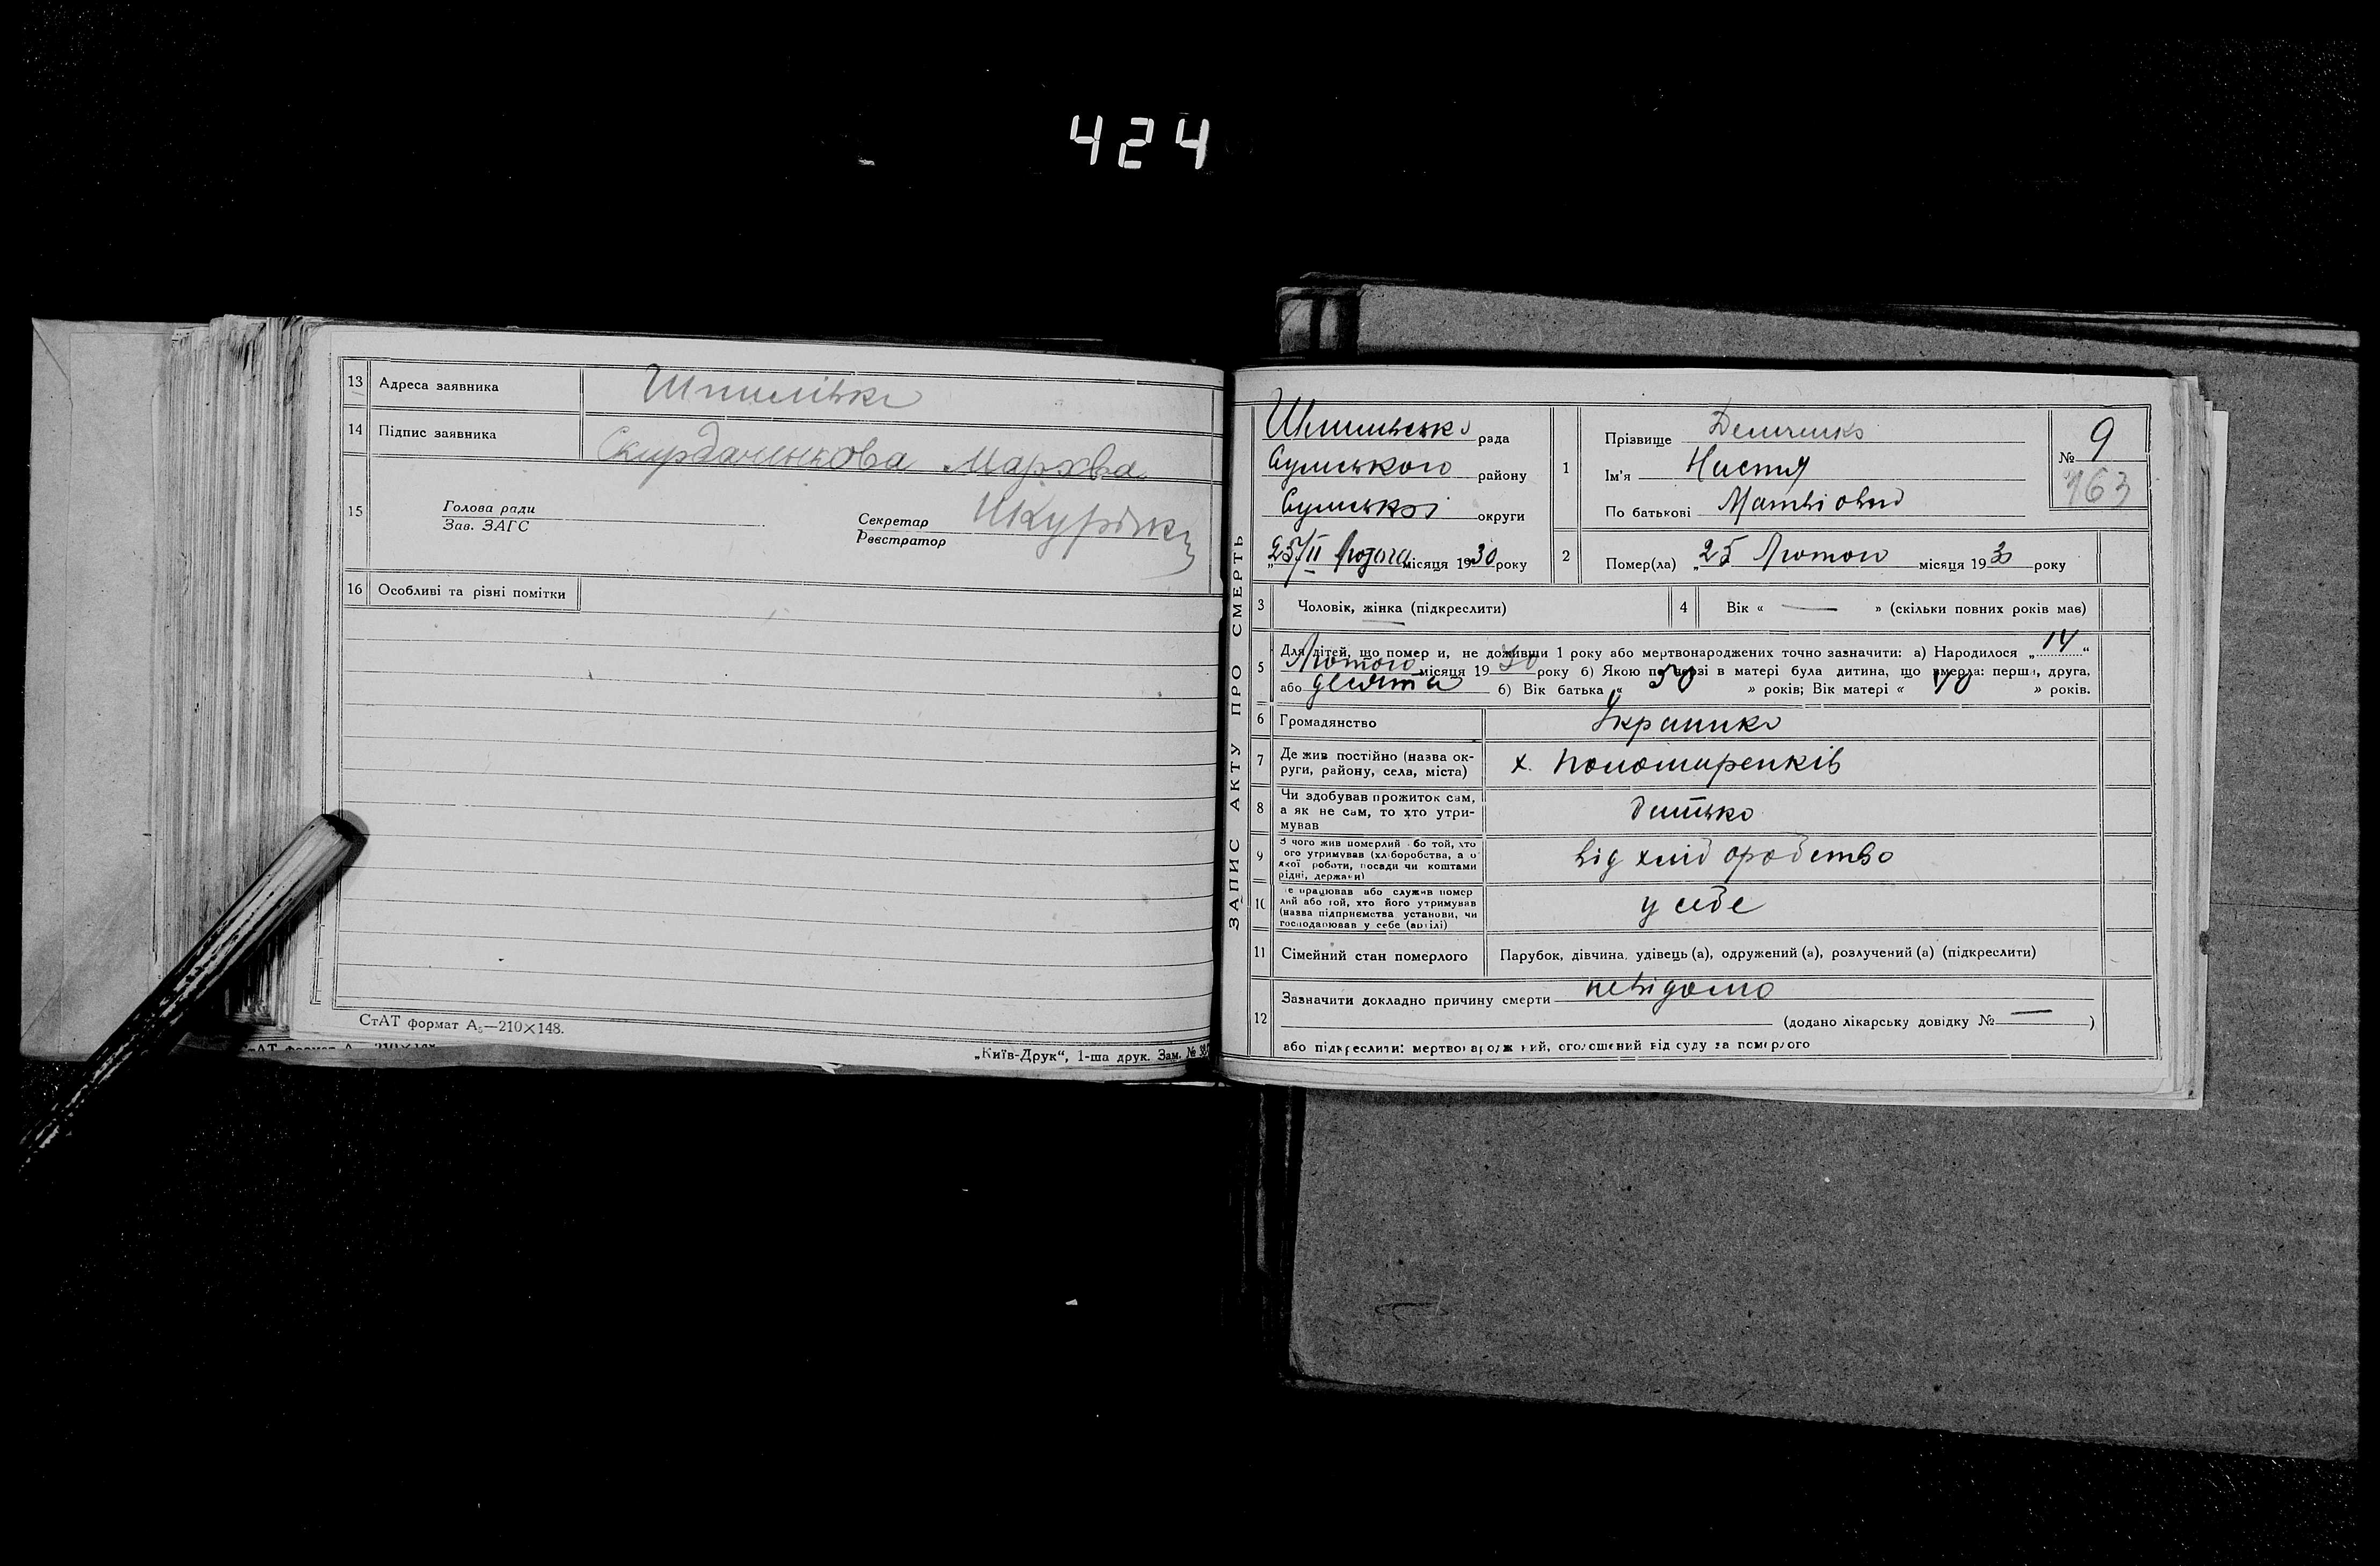 424
13 Адреса заявника Шпилівка
14 Підпис заявника Скирдаченкова Мархва
15 Голова ради
Зав. ЗАГС
Секретар
Реєстратор
16 Особливі та різні помітки
СтАТ формат А₅—210×148.
„Київ-Друк“, 1-ша друк. Зам. №
ЗАПИС АКТУ ПРО СМЕРТЬ
Шпилівська рада
Сумського району
Сумської округи
„25/II Лютого місяця 1930 року
1 Прізвище
Ім'я Настя
По батькові Матвіовна
№ 9
163
2 Помер(ла) „25 Лютого місяця 1930 року
3 Чоловік, жінка (підкреслити)
4 Вік « — » (скільки повних років має)
5 Для дітей, що помер и, не доживши 1 року або мертвонароджених точно зазначити: а) Народилося „14“
Лютого місяця 1930 року б) Якою по черзі в матері була дитина, що вмерла: перша, друга,
або десята б) Вік батька „50» років; Вік матері «40» років.
6 Громадянство Українка
7 Де жив постійно (назва ок-
руги, району, села, міста) х. Пономаренків
8 Чи здобував прожиток сам,
а як не сам, то хто утри-
мував батько
9 З чого жив померлий або той, хто
його утримував (хліборобства, а о
якої роботи, посади чи коштами
рідні, держави) від хліборобства
10 Де працював або служив помер
лий або той, хто його утримував
(назва підприємства установи, чи
господарював у себе (артілі) у себе
11 Сімейний стан померлого Парубок, дівчина, удівець (а), одружений (а), розлучений (а) (підкреслити)
12 Зазначити докладно причину смерти невідомо
(додано лікарську довідку № — )
або підкреслити: мертвонароджений, оголошений від суду за померлого